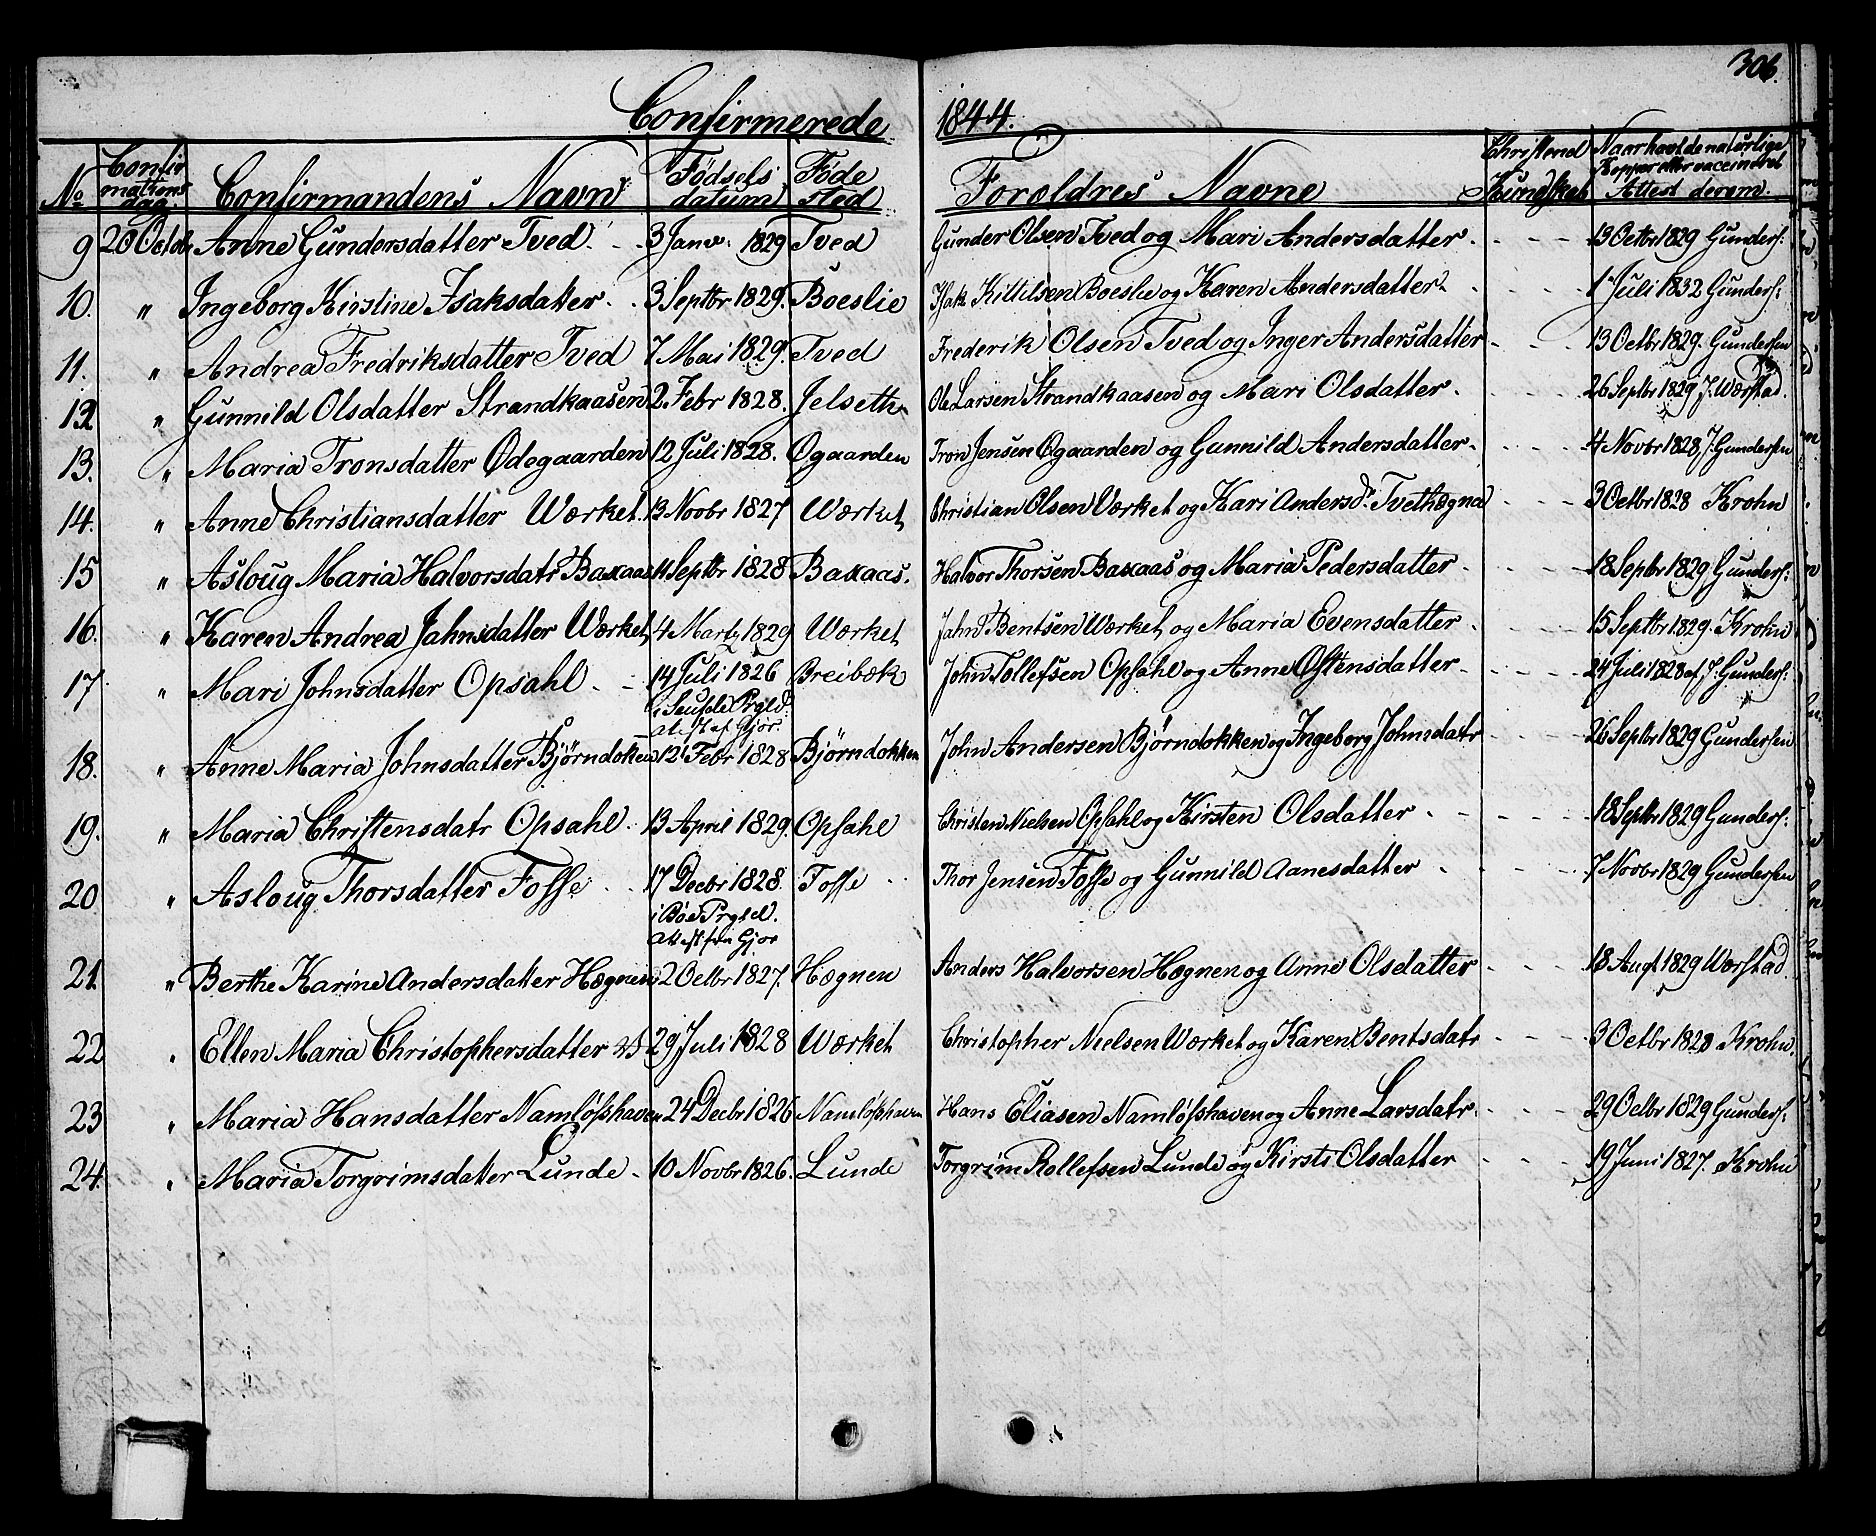 306.
Confirmerede 1844.
No Confirmations dag Confirmandens Navn Fødsels datum Føde sted Foroldres Navne Christend Kundskab Naar havt de natúrlige Kopper eller vaccineret Attest derom
9 20 Octob Anne Gundersdatter Tved 3 Janv. 1829 Tved Gunder Olsen Tved og Mari Andersdatter 13 Octbr 1829 Gunders:
10. " Ingeborg Kirstine Isaksdatter 3 Septbr 1829. Boeslie Isak Kittilsen Boeslie og Karen Andersdatter 1 Juli 1832 Gunders:
11. " Andrea Fredriksdatter Tved 7 Mai 1829. Tved Frederik Olsen Tved og Inger Andersdatter 13 Octbr 1829. Gundersen
12 " Gunnild Olsdatter Strandkaasen 2. Febr 1828. Jelseth Ole Larsen Strandkaasen og Mari Olsdatter 26 Septbr 1829 J. Wærstad.
13. " Maria Tronsdatter Ødegaarden 12 Juli 1828. Øgaarden Tron Jensen Øgaarden og Gunnild Andersdatter 4 Novbr 1828, J. Gundersen
14. " Anne Christiansdatter Værket 13 Novbr 1827 Værket Christian Olsen Værket og Kari Andersdr Tvethægna 3 Octbr 1828 Krohn
15 " Asloug Maria Halvorsdatr Baxaas 11 Septbr 1828 Baxaas. Halvor Thorsen Baxaas og Maria Pedersdatter 18 Septbr 1829 Gunders:
16. " Karen Andrea Jahnsdatter Værket 4 Marty 1829 Værket Jahn Bentsen Værket og Maria Evensdatter 15 Septbr 1829. Krohn
17 " Mari Johnsdatter Opsahl 14 Juli 1826 Breibæk John Tollefsen Opsahl og Anne Ostensdatter 24 Juli 1828 af J. Gunders:
i Seufde Prgld.
attest af Gjor.
18. " Anne Maria Johnsdatter Bjørndoken 12 Febr 1828 Bjørndokken John Andersen Bjørndokken og Ingeborg Johnsdatr 26 Septbr 1829 Gundersen
19. " Maria Christensdatr Opsahl 13 April 1829 Opsahl Christen Nielsen Opsahl og Kirsten Olsdatter 18 Septbr 1829 Gunders:
20 " Asloug Thorsdatter Fosse 17 Decbr 1828. Fosse Thor Jensen Fosse og Gunnild Aanesdatter 7 Novbr 1829 Gundersen
i Bøe Prgled.
Attest fra Gjor
21 " Berthe Karine Andersdatter Hægnen 2 Octbr 1827. Hægnen Anders Halvorsen Hægnen og Anne Olsdatter 18 Augt 1829 Wærstad
22 " Ellen Maria Christophersdatter 29 Juli 1828 Værket Christopher Nielsen Værket og Karen Bentsdatr 3 Octbr 1828 Krohn.
23 " Maria Hansdatter Namløshaven 24 Decbr 1826 Namløshaven Hans Eliasen Namløshaven og Anne Larsdatr 29 Octbr 1829 Gunders:
24. " Maria Torgrimsdatter Lunde 10 Novbr 1826. Lunde Torgrim Rollefsen Lunde og Kirsti Olsdatter 19 Juni 1827. Krohn